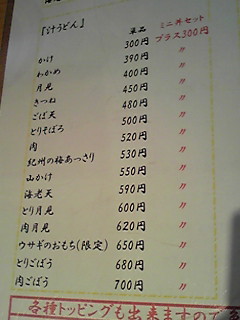 『汁うどん』 単品 ミニ丼セット
かけ 300円 プラス300円
わかめ 390円 〃
月見 400円 〃
きつね 450円 〃
ごぼ天 480円 〃
とりそぼろ 500円 〃
肉 520円 〃
紀州の梅あっさり 530円 〃
山かけ 550円 〃
海老天 590円 〃
とり月見 600円 〃
肉月見 620円 〃
ウサギのおもち(限定) 650円 〃
とりごぼう 680円 〃
肉ごぼう 700円 〃
各種トッピングも出来ますので